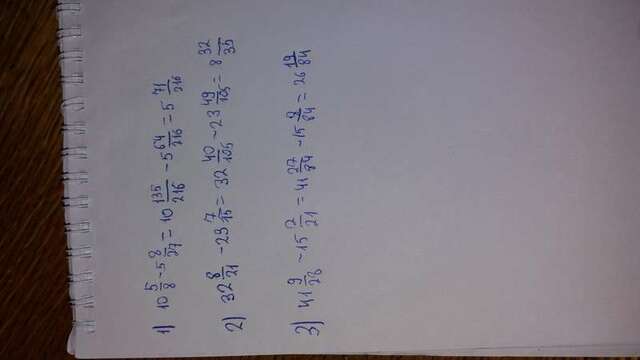 1) 10 5/8 - 5 8/27 = 10 135/216 - 5 64/216 = 5 71/216
2) 32 8/21 - 23 7/15 = 32 40/105 - 23 49/105 = 8 32/35
3) 41 9/28 - 15 2/21 = 41 27/84 - 15 8/84 = 26 19/84